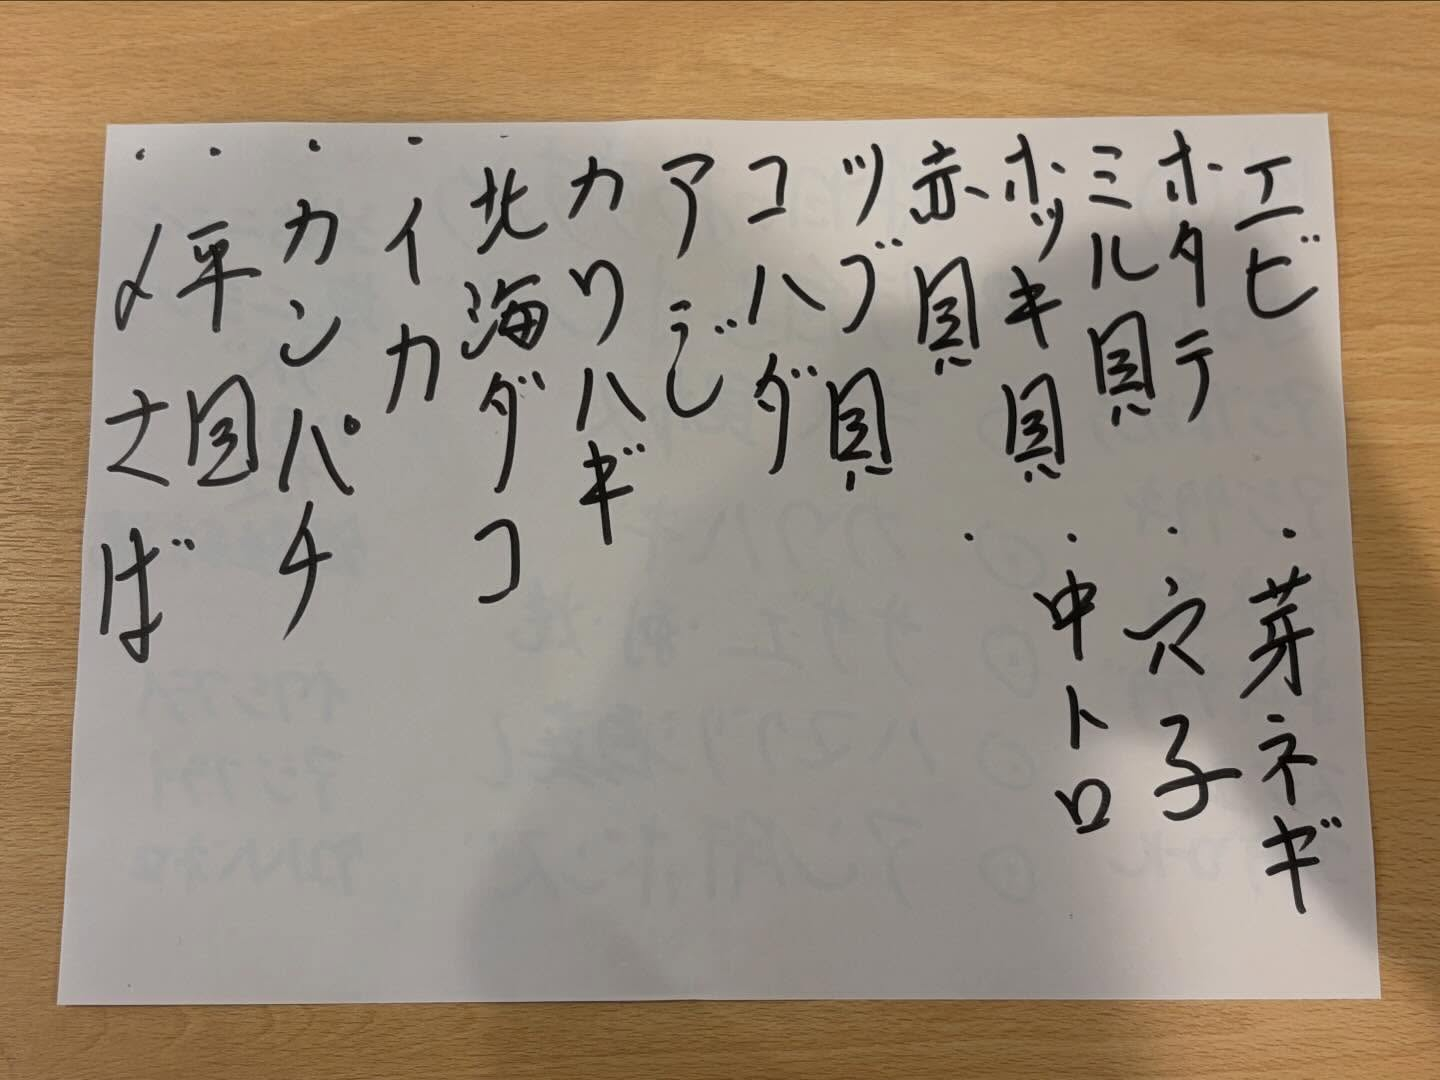 エビ
ホタテ
ミル貝
ホッキ貝
赤貝
ツブ貝
コハダ
アじ
カワハギ
北海ダコ
・イカ
・カンパチ
・平目
・〆さば
・芽ネギ
・穴子
・中トロ
・